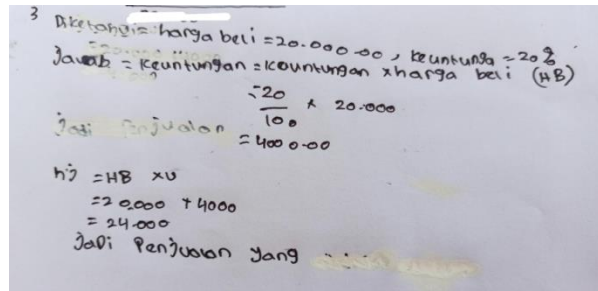 3 Diketahui = harga beli = 20.000.00, keuntunga = 20%
Jawab = Keuntungan = keuntungan x harga beli (HB)
= 20/100 x 20.000
Jadi Penjualan
= 4000.00
hj = HB x U
= 20.000 + 4000
= 24.000
Jadi Penjualan yang